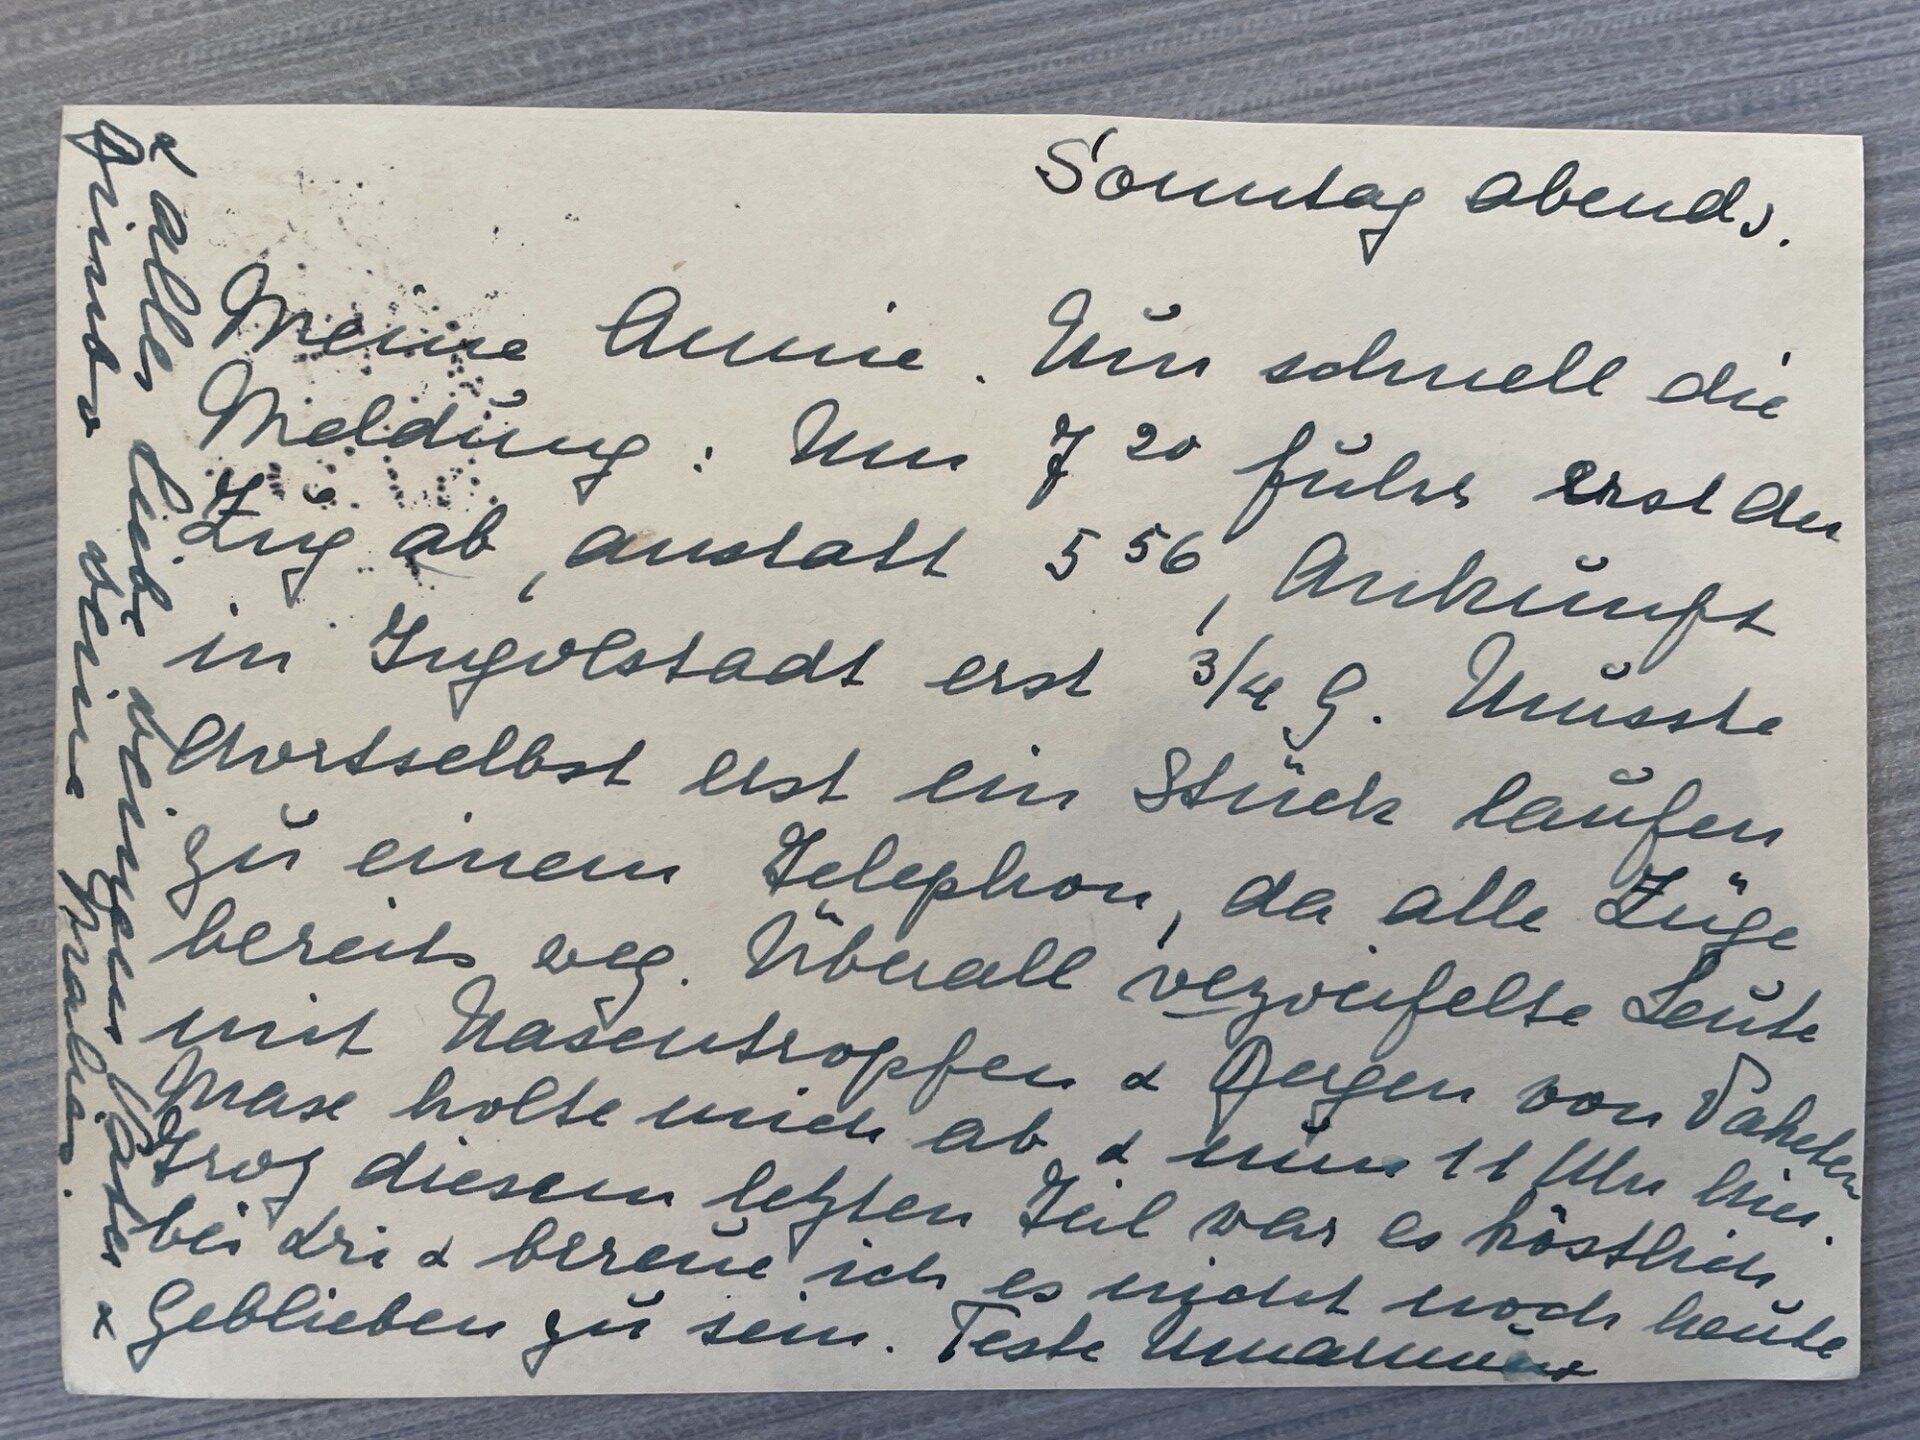 Sonntag abends.
Meine Annie. Nur schnell die
Meldung: Um 7 20 fuhr erst der
Zug ab, anstatt 5 56, Ankunft
in Ingolstadt erst 3/4 9. Musste
dortselbst erst ein Stück laufen
zu einem Telephon, da alle Züge
bereits weg. Überall verzweifelte Leute
mit Nasentropfen & Bergen von Paketen
Max holte mich ab & nun 11 Uhr hier.
Troz diesem letzten Teil war es köstlich
bei Dir & bereue ich es nicht noch heute
geblieben zu sein. Feste Umarmung
x alles liebe deinem Vater x
deine